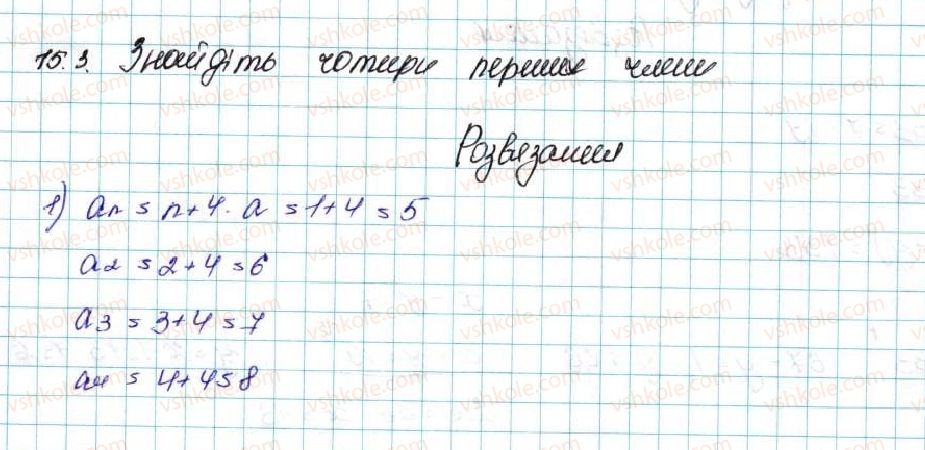 15.3. Знайдіть чотири перших члени
Розвязання
1) an = n+4. a = 1+4 = 5
a2 = 2+4 = 6
a3 = 3+4 = 7
a4 = 4+4 = 8